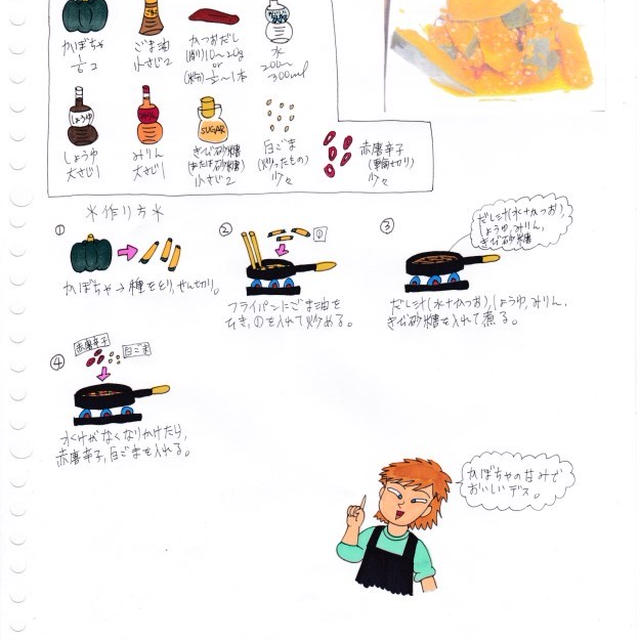 かぼちゃ
1/6コ
ごま油
小さじ2
かつおだし
(削)10~20g
or
(粉)1/2~1本
水
200~
300ml
しょうゆ
しょうゆ
大さじ1
みりん
みりん
大さじ1
SUGAR
きび砂糖
(または砂糖)
小さじ2
白ごま
(炒ったもの)
少々
赤唐辛子
(輪切り)
少々
*作り方*
①
かぼちゃ→種をとり、せん切り。
②
①
フライパンにごま油を
ひき、①を入れて炒める。
③
だし汁(水+かつお),
しょうゆ,みりん,
きび砂糖
だし汁(水+かつお),しょうゆ,みりん,
きび砂糖を入れて煮る。
④
赤唐辛子
白ごま
水けがなくなりかけたら,
赤唐辛子,白ごまを入れる。
かぼちゃの甘みで
おいしいデス。